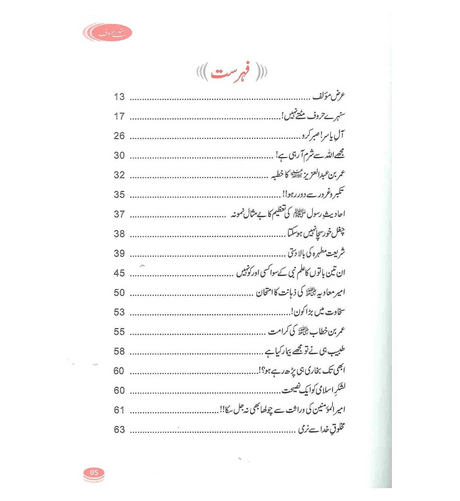 سنہرے حروف
فہرست
عرض مؤلف ........ 13
سنہرے حروف مٹتے نہیں! ........ 17
آلِ یاسر! صبر کرو ........ 26
مجھے اللہ سے شرم آ رہی ہے! ........ 30
عمر بن عبدالعزیز کا خطبہ ........ 32
تکبر و غرور سے دور رہو!! ........ 35
احادیثِ رسول ﷺ کی تعظیم کا بے مثال نمونہ ........ 37
چغل خور سچا نہیں ہو سکتا ........ 38
شریعت مطہرہ کی بالا دستی ........ 39
ان تین باتوں کا علم نبی کے سوا کسی اور کو نہیں ........ 45
امیر معاویہ کی ذہانت کا امتحان ........ 50
سخاوت میں بڑا کون! ........ 53
عمر بن خطاب کی کرامت ........ 55
طبیب ہی نے تو مجھے بیمار کیا ہے ........ 58
ابھی تک بخاری ہی پڑھ رہے ہو؟!! ........ 60
لشکرِ اسلامی کو ایک نصیحت ........ 60
امیر المؤمنین کی وراثت سے چولھا بھی نہ جل سکا!!! ........ 61
مخلوقِ خدا سے نرمی ........ 63
05